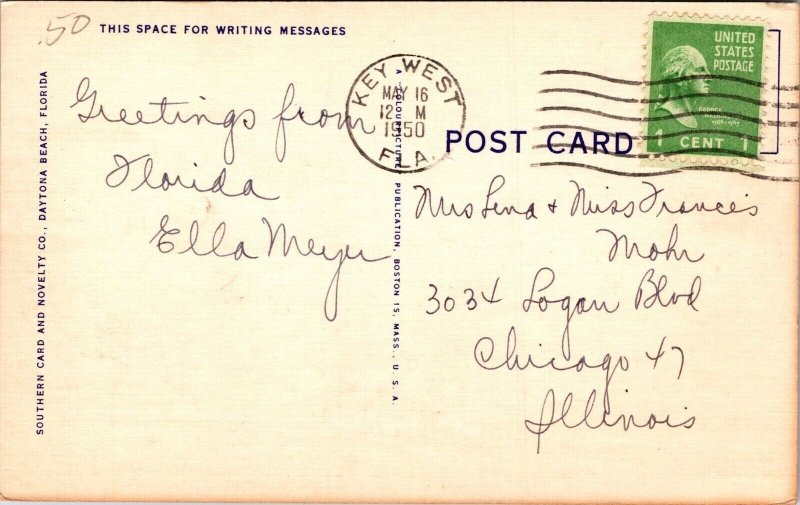 .50
THIS SPACE FOR WRITING MESSAGES
Greetings from
Florida
Ella Meyer
SOUTHERN CARD AND NOVELTY CO., DAYTONA BEACH, FLORIDA
A "COLOURPICTURE" PUBLICATION, BOSTON 15, MASS., U. S. A.
KEY WEST
MAY 16
12 M
1950
FLA.
POST CARD
UNITED
STATES
POSTAGE
GEORGE
WASHINGTON
1 CENT 1
Mrs Lena + Miss Frances
Mohr
3034 Logan Blvd
Chicago 47
Illinois